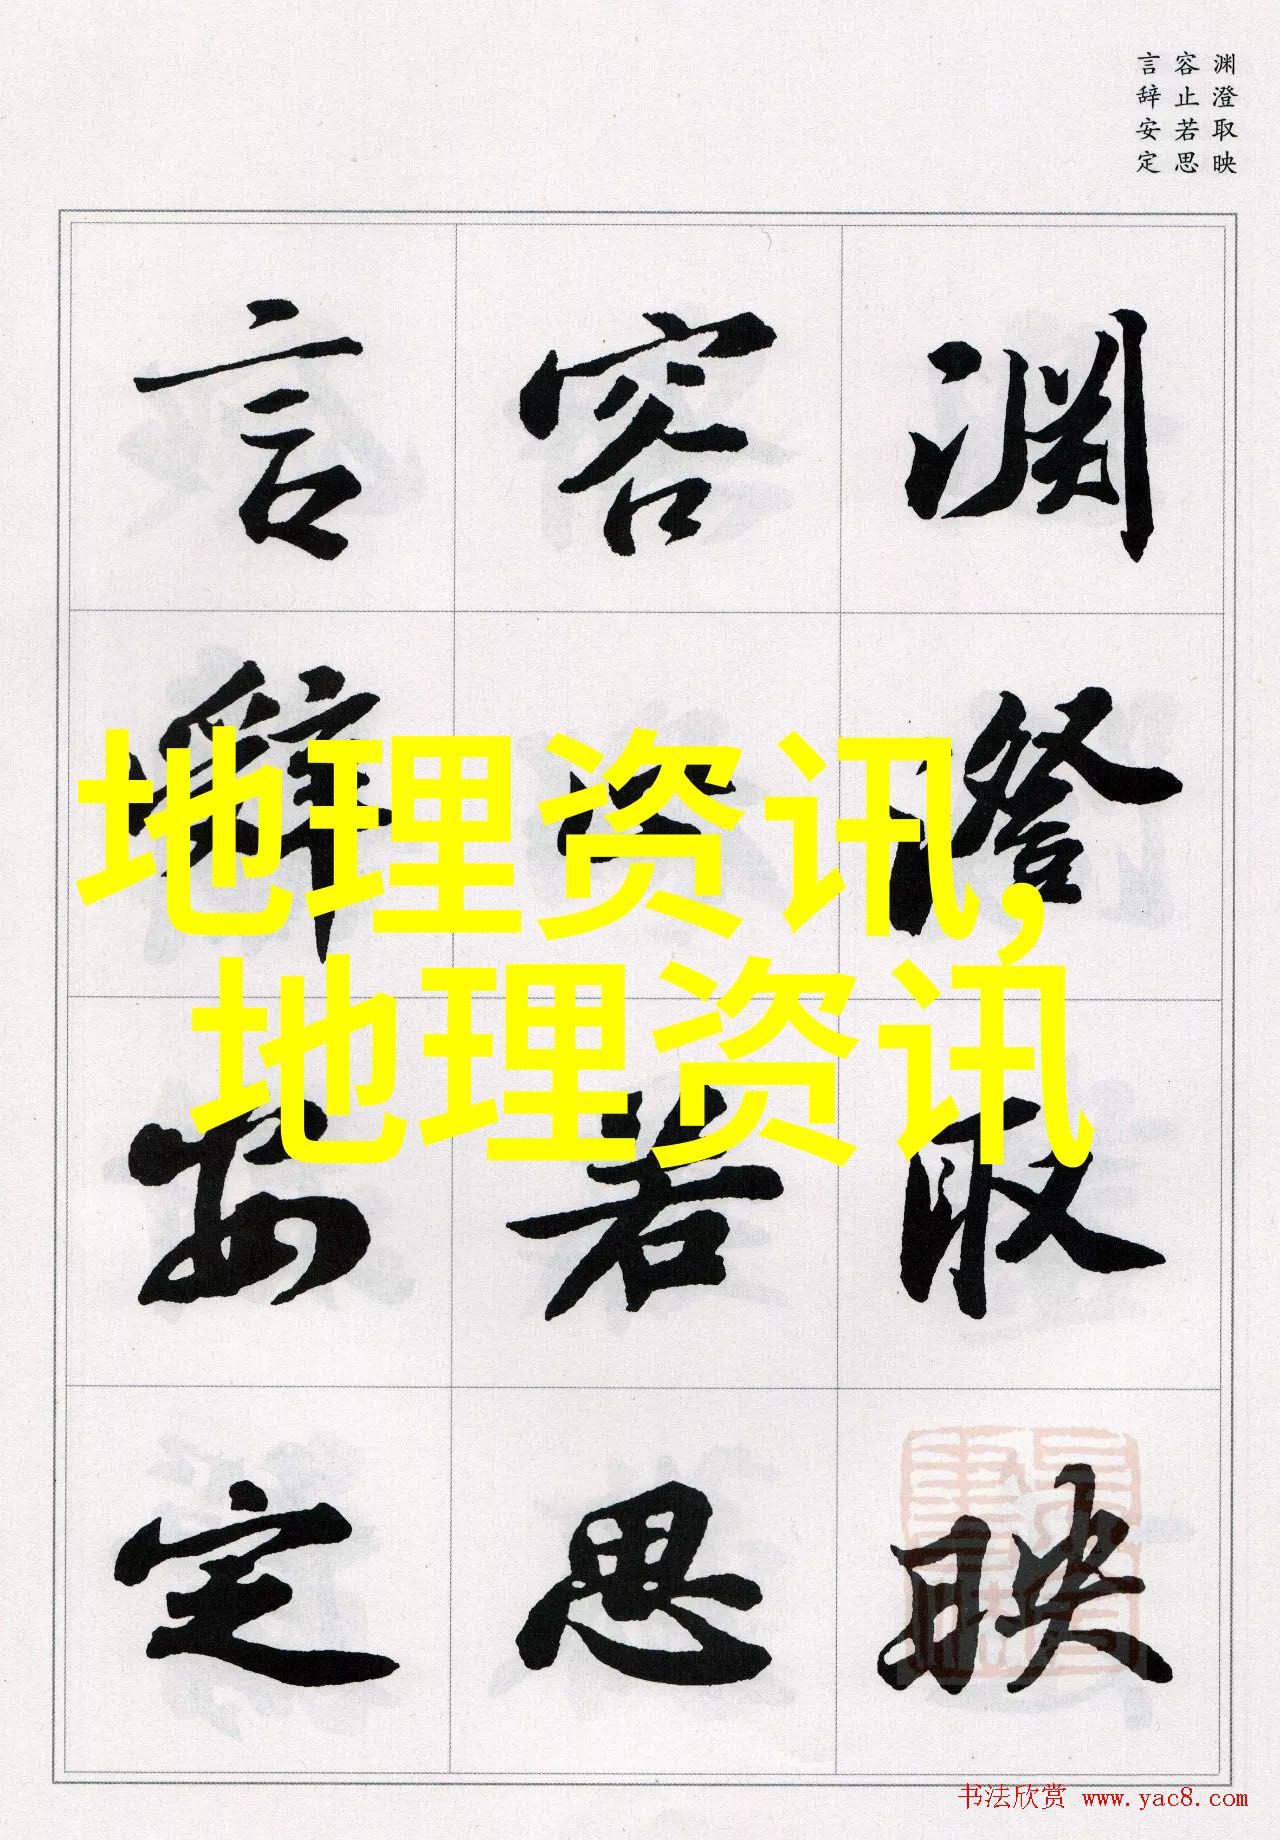 渊澄取映
容止若思
言辞安定
渊澄取映
容止若思
言辞安定
地理资讯,
地理资讯
书法欣赏 www.yac8.com